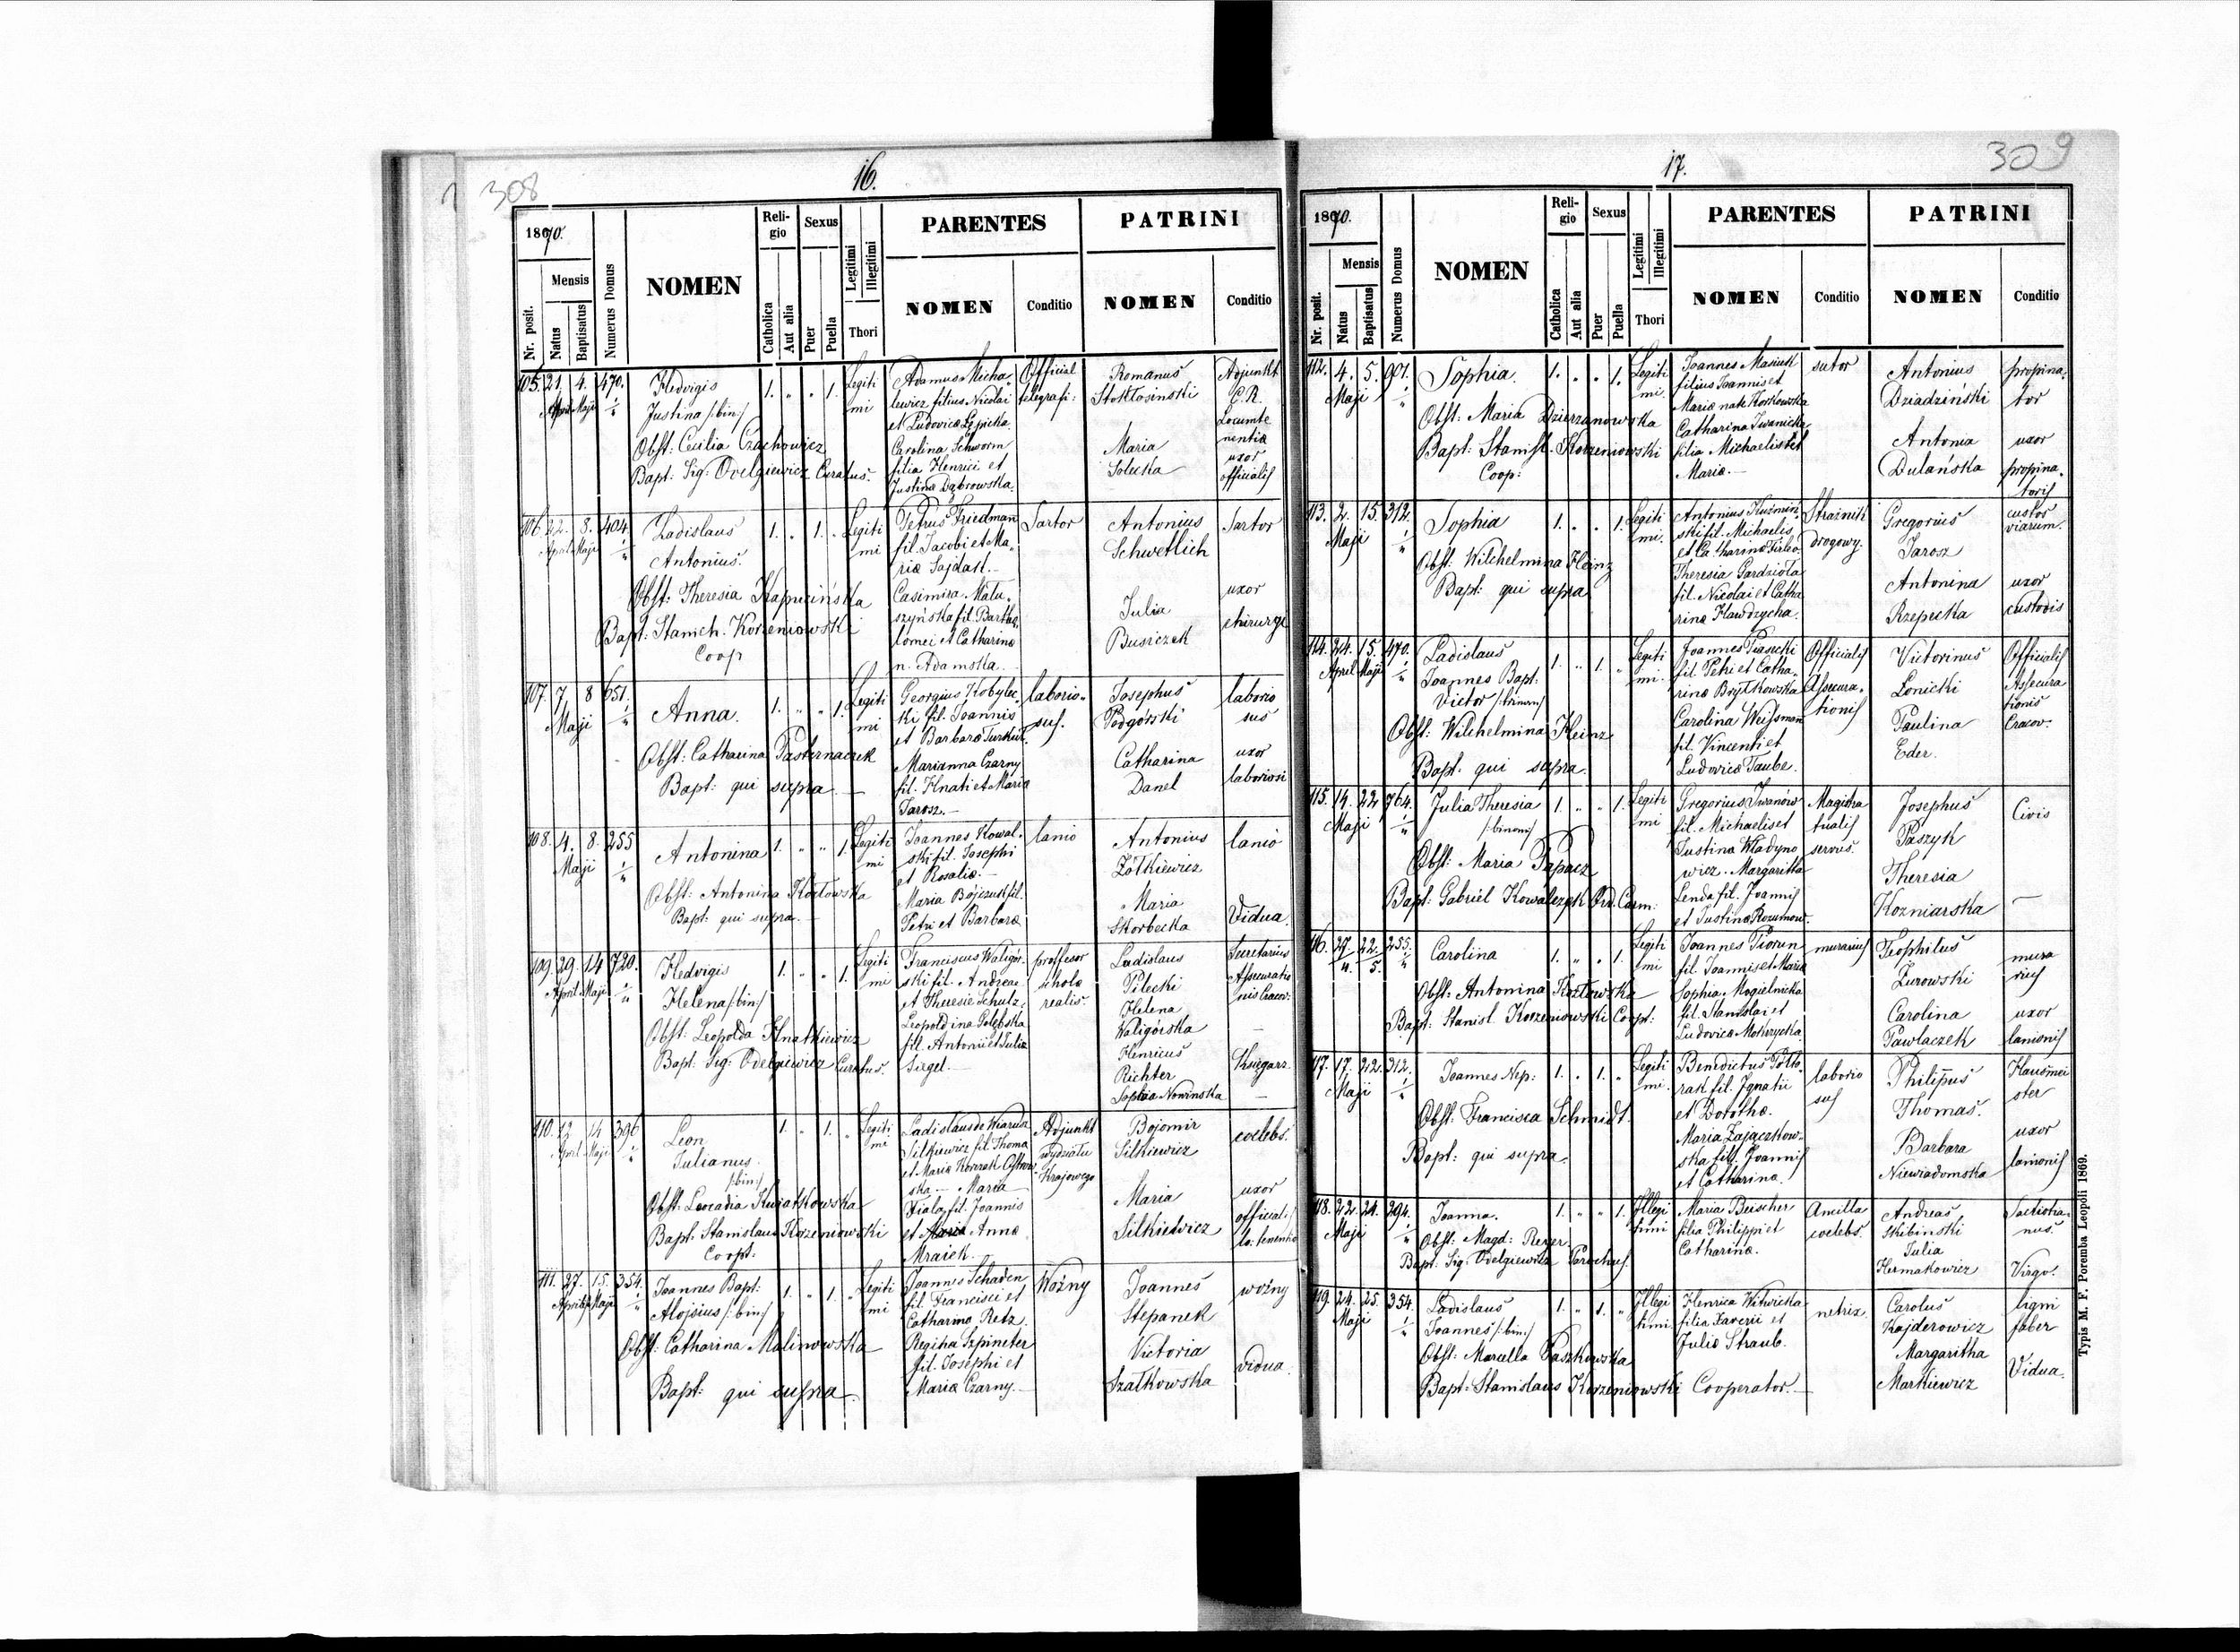 308
16.
1870.
Nr. posit.
Mensis
Natus
Baptisatus
Numerus Domus
NOMEN
Religio
Catholica
Aut alia
Sexus
Puer
Puella
Legitimi
Illegitimi
Thori
PARENTES
NOMEN
Conditio
PATRINI
NOMEN
Conditio
105. 21. 4. 470.
April Maji
Hedvigis
Justina /:bin:/
Obst: Cecilia Czachowicz
Bapt: Sig: Odelgiewicz Curatus.
1. " " 1.
Legiti
mi
Adamus Micha
lewicz filius Nicolai
et Ludovicæ Łępicka.
Carolina Schworm
filia Henrici et
Justinæ Dąbrowska.
Official
telegrafi:
Romanus
Stokłosinski
Maria
Solecka
Adjunkt
C.R.
Locumte
nentiæ
uxor
officialis
106. 22. 8. 404.
April Maji
Ladislaus
Antonius.
Obst: Theresia Kapucińska
Bapt: Stanich. Korzeniowski
Coop
1. " 1. "
Legiti
mi
Petrus Friedman
fil. Jacobi et Ma
riæ Sajdak.-
Casimira Matu
szyńska fil. Bartho
lomei et Catharinæ
n. Adamska.
Sartor
Antonius
Schwetlich
Julia
Busiczek
Sartor
uxor
chirurgi
107. 7. 8 651.
Maji
Anna.
Obst: Catharina Pasternaczek
Bapt: qui supra
1. " " 1.
Legiti
mi
Georgius Kobylec
ki fil. Joannis
et Barbaræ Turkiel.
Marianna Czarny
fil. Hnati et Maria
Jarosz.-
laborio
sus.
Josephus
Podgórski
Catharina
Danel
laborio
sus
uxor
laboriosi
108. 4. 8. 255
Maji
Antonina
Obst: Antonina Kozłowska
Bapt: qui supra.-
1. " " 1.
Legiti
mi
Joannes Kowal
ski fil. Josephi
et Rosaliæ.-
Maria Bojczuk fil.
Petri et Barbaræ
lanio
Antonius
Żółkiewicz
Maria
Skorbecka
lanio
Vidua
109. 29. 14 720.
April Maji
Hedvigis
Helena /:bin:/
Obst: Leopolda Hnatkiewicz
Bapt: Sig: Odelgiewicz Curatus.
1. " " 1.
Legiti
mi
Franciscus Waligór
ski fil. Andreæ
et Theresiæ Schulz
Leopoldina Gołębska
fil. Antonii et Julia
Siegel.-
proffesor
scholæ
realis.
Ladislaus
Pilecki
Helena
Waligórska
Henricus
Richter
Sophia Nowinska
Secretarius
Assecuratio
nis Cracov:
Księgarz
110. 12 14 396
April Maji
Leon
Julianus.
/:bin:/
Obst: Leocadia Kwiatkowska
Bapt: Stanislaus Korzeniowski
Coopt:
1. " 1. "
Legiti
mi
Ladislaus de Wiarusz
Silkiewicz fil. Thoma
ska.- Maria
Fiala fil. Joannis
et Maria Annæ
Mraiek.
Adjunkt
wydziału
Krajowego
Bojomir
Silkiewicz
Maria
Silkiewicz
coelebs.
uxor
officiali
111. 27. 15. 354.
Aprilis Maji
Joannes Bapt:
Alojsius /:bin:/
Obst: Catharina Malinowska
Bapt: qui supra
1. " 1. "
Legiti
mi
Joannes Schaden
fil. Francisci et
Catharina Retz.
Regina Szpineter
fil. Josephi et
Mariæ Czarny.-
Woźny
Joannes
Stepanek
Victoria
Szatkowska
woźny
vidua.
17.
309
1870.
Nr. posit.
Mensis
Natus
Baptisatus
Numerus Domus
NOMEN
Religio
Catholica
Aut alia
Sexus
Puer
Puella
Legitimi
Illegitimi
Thori
PARENTES
NOMEN
Conditio
PATRINI
NOMEN
Conditio
112. 4. 5. 901.
Maji
Sophia.
Obst: Maria Dzierzanowska
Bapt: Stanisl. Korzeniowski
Coop:
1. " " 1.
Legiti
mi.
Joannes Masiuk
filius Joannis et
Mariæ natæ Korkowska
Catharina Iwanicka
filia Michaelis et
Mariæ.-
sutor
Antonius
Dziadziński
Antonia
Dulańska
propina
tor
uxor
propina
toris
113. 2. 15. 312.
Maji
Sophia
Obst: Wilchelmina Heinz
Bapt: qui supra
1. " " 1.
Legiti
mi.
Antonius Kuźmiń
ski fil. Michaelis
Theresia Gardzioła
fil. Nicolai et Catha
rinæ Hawdzycha.
Strażnik
drogowy.
Gregorius
Jarosz
Antonina
Rzepecka
custos
viarum.
uxor
custodis
114. 24. 15. 470.
April Maji
Ladislaus
Joannes Bapt:
Victor /:trinom:/
Obst: Wilchelmina Heinz
Bapt: qui supra.
1. " 1. "
Legiti
mi.
Joannes Piasecki
fil. Petri et Catha
rinæ Brytkowska
Carolina Weissman
fil. Vincenti et
Ludovicæ Taube.
Officialis
Assecura
tionis
Victorinus
Łonicki
Paulina
Eder.
Officialis
Assecura
tionis
Cracov:
115. 14. 22. 764.
Maji
Julia Theresia
/:binom:/
Obst: Maria Papacz
Bapt: Gabriel Kowalczyk Ord. Carm:
1. " " 1.
Legiti
mi
Gregorius Iwanów
fil. Michaelis et
Justina Władyno
wicz. Margaritha
Lenda fil. Joannis
et Justinæ Rozumow.
Magistra
tualis
servus.
Josephus
Paszyk
Theresia
Kozniarska
Civis
116. 27/4. 22/5. 255.
Carolina
Obst: Antonina Kozłowska
Bapt: Stanisl. Korzeniowski Coopt:
1. " " 1.
Legiti
mi
Joannes Piorun
fil. Joannis et Mariæ
Sophia Mogielnicka
fil. Stanislai et
Ludovicæ Mokrzycka.
murarius
Teophilus
Żurowski
Carolina
Pawlaczek
mura
rius
uxor
lanionis
117. 17. 22. 312.
Maji
Joannes Nep:
Obst: Francisca Schmidt.
Bapt: qui supra.
1. " 1. "
Legiti
mi.
Benedictus Półto
rak fil. Ignatii
et Dorothæ.
Maria Zajączkow
ska fil. Joannis
et Catharina.
laborio
sus
Philippus
Thomas.
Barbara
Niewiadomska
Hausmei
ster
uxor
lanionis
118. 22. 24. 394.
Maji
Joanna.
Obst: Magd: Reger
Bapt. Sig: Odelgiewicz Parochus.
1. " " 1.
Illegi
timi
Maria Beischer
filia Philippi et
Catharinæ.
Ancilla
coelebs.
Andreas
Skibinski
Julia
Hermakowicz
Virgo.
119. 24. 25. 354.
Maji
Ladislaus
Joannes /:bin:/
Obst: Marcella Paszkowska
Bapt: Stanislaus Korzeniowski Cooperator.-
1. " 1. "
Illegi
timi
Henrica Witwicka
filia Xaverii et
Juliæ Straub.
netrix.
Carolus
Kajderowicz
Margaritha
Markiewicz
ligni
faber
Vidua.
Typis M. F. Poremba Leopoli 1869.